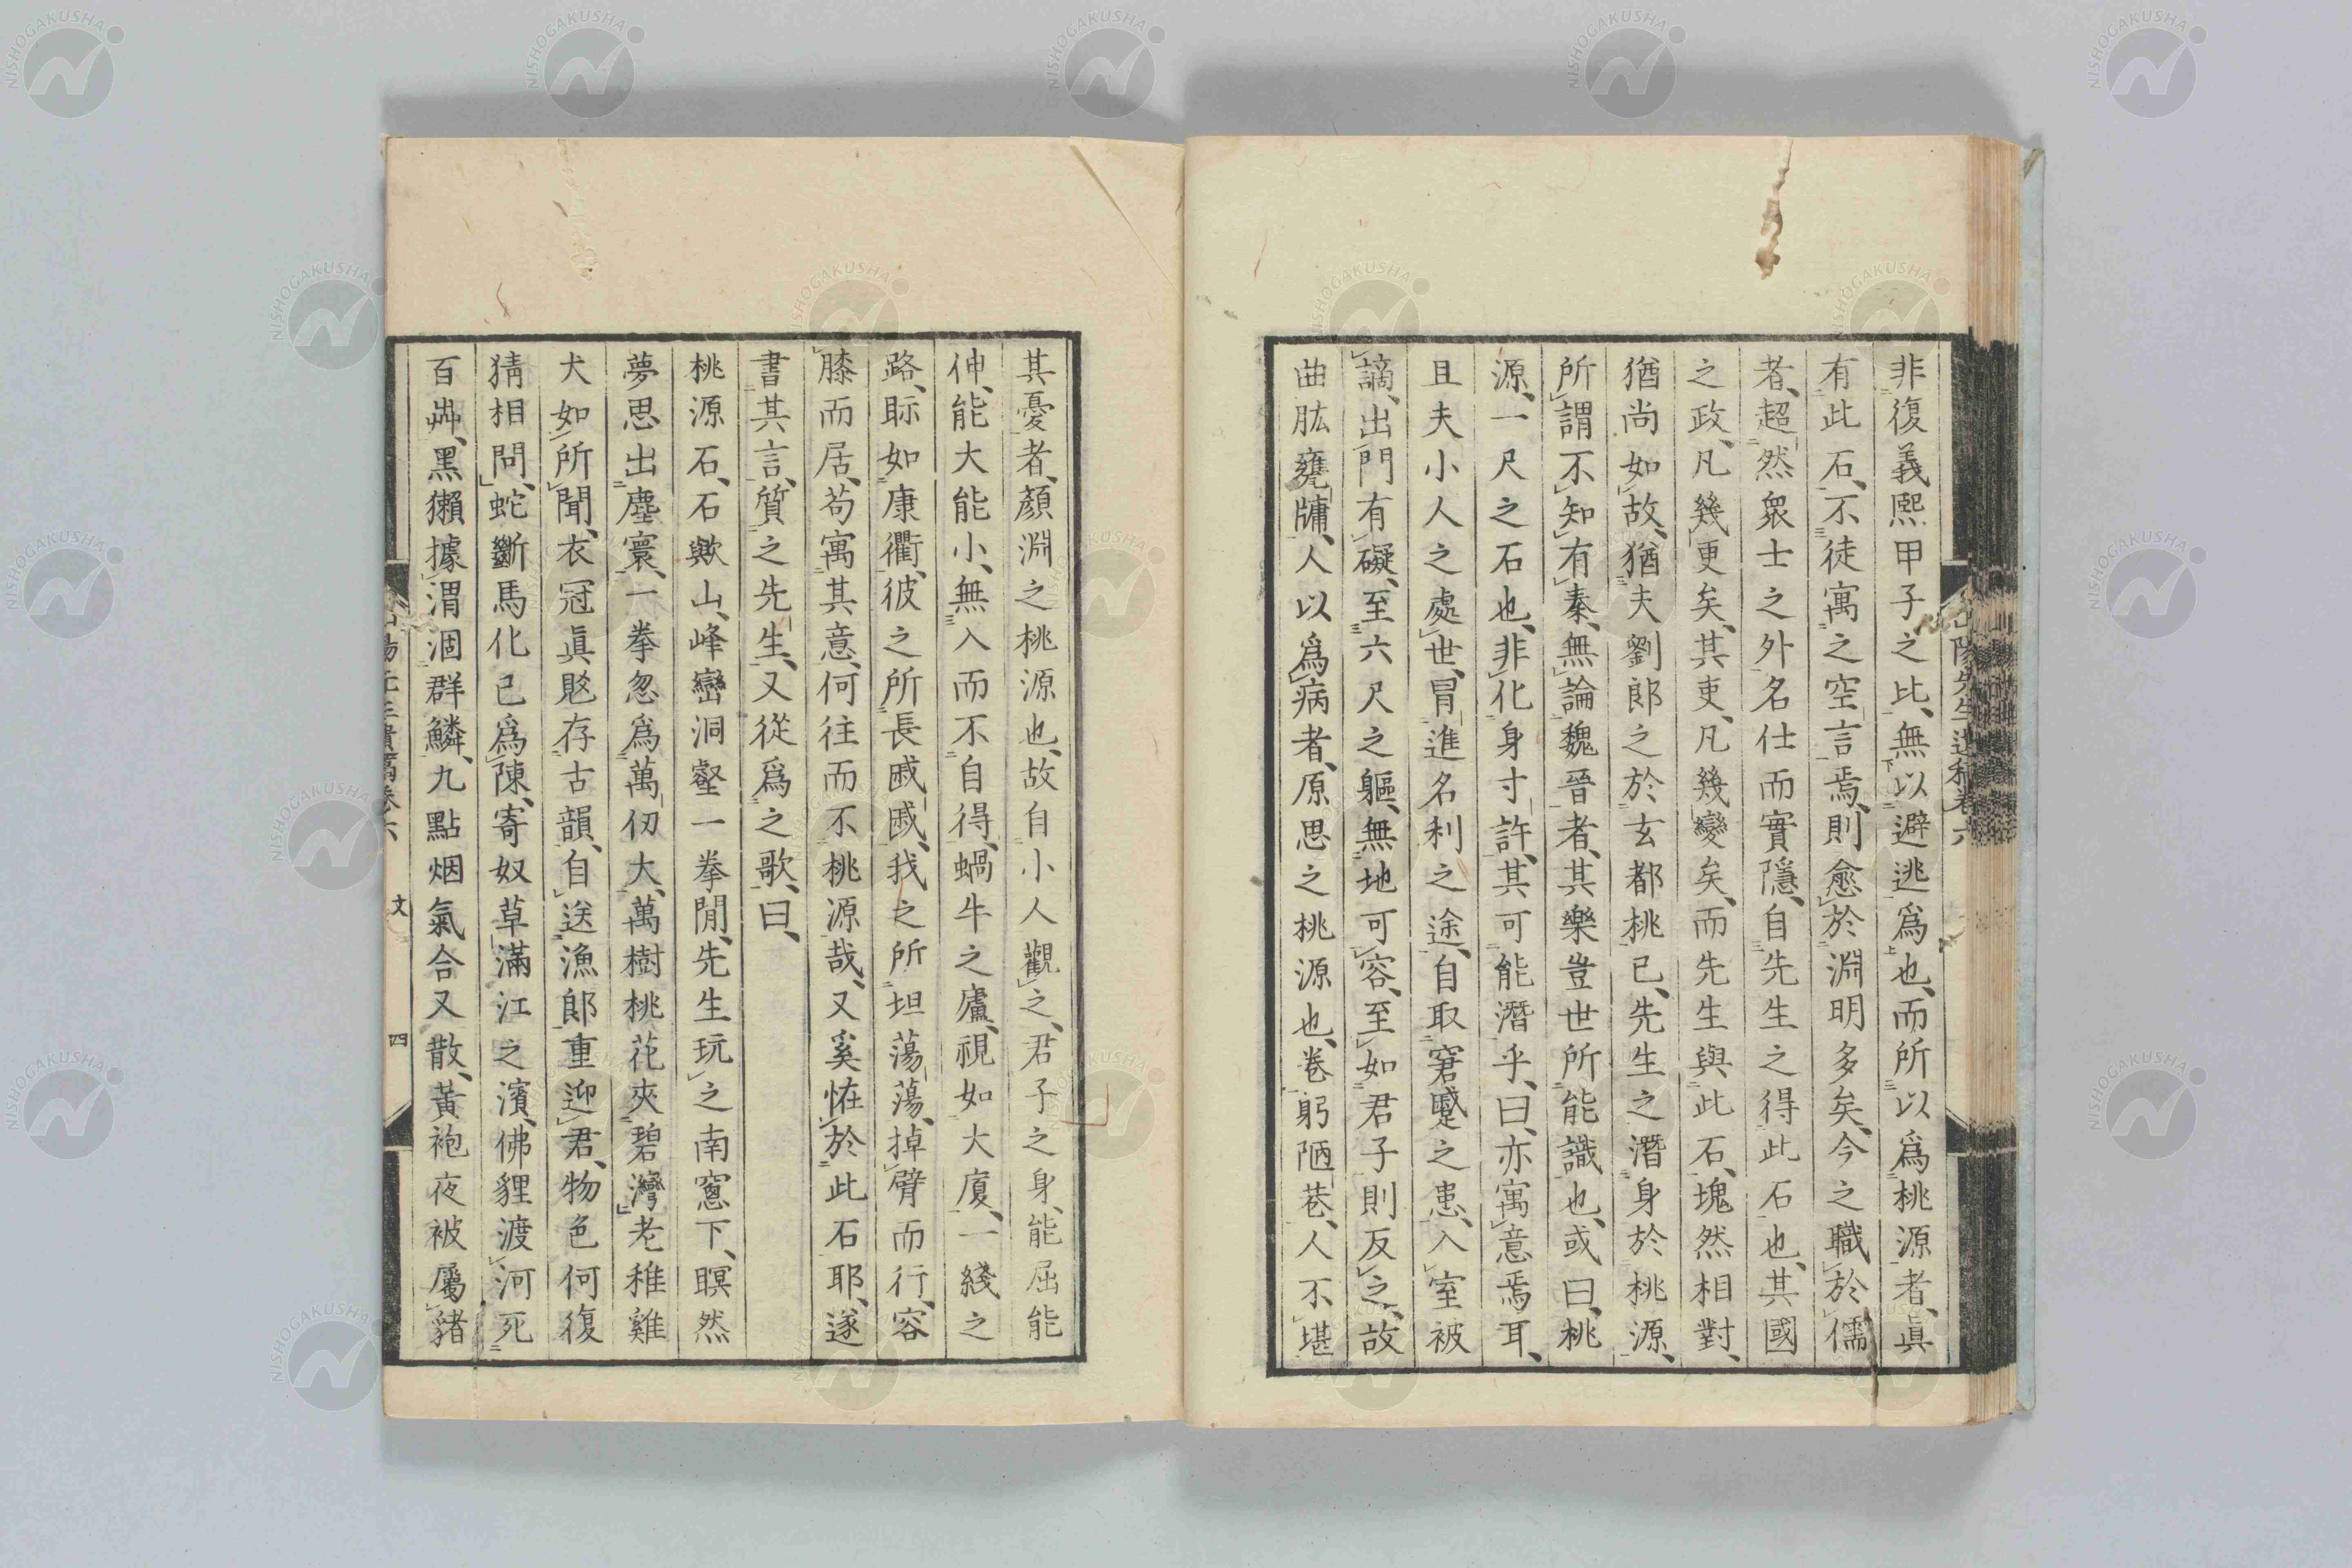 非復義熙甲子之比、無以避逃爲也、而所以爲桃源者、眞
有此石、不徒寓之空言焉、則愈於淵明多矣、今之職於儒
者、超然衆士之外、名仕而實隱、自先生之得此石也、其國
之政、凡幾更矣、其吏、凡幾變矣、而先生與此石、塊然相對、
猶尚如故、猶夫劉郎之於玄都桃已、先生之潛身於桃源、
所謂不知有秦、無論魏晉者、其樂豈世所能識也、或曰、桃
源、一尺之石也、非化身寸許、其可能潛乎、曰、亦寓意焉耳、
且夫小人之處世、冒進名利之途、自取窘蹙之患、入室被
謫、出門有礙、至六尺之軀、無地可容、至如君子則反之、故
曲肱甕牖、人以爲病者、原思之桃源也、卷躬陋巷、人不堪
其憂者、顏淵之桃源也、故自小人觀之、君子之身、能屈能
伸、能大能小、無入而不自得、蝸牛之廬、視如大廈、一綫之
路、眎如康衢、彼之所長戚戚、我之所坦蕩蕩、掉臂而行、容
膝而居、苟寓其意、何往而不桃源哉、又奚恠於此石耶、遂
書其言、質之先生、又從爲之歌、曰、
桃源石、石歟山、峰巒洞壑一拳閒、先生玩之南窻下、瞑然
夢思出塵寰、一拳忽爲萬仞大、萬樹桃花夾碧灣、老稚雞
犬如所聞、衣冠眞貺存古韻、自送漁郎重迎君、物色何復
猜相問、蛇斷馬化已爲陳、寄奴草滿江之濱、佛貍渡河死
百艸、黑獺據渭涸群鱗、九點烟氣合又散、黃袍夜被屬豬
山陽先生遺稿卷六
文
四
NISHOGAKUSHA